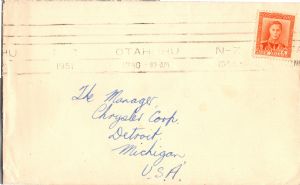 OTAHUHU N-Z
1951
The Manager,
Chrysler Corp.
Detroit
Michigan
U.S.A.